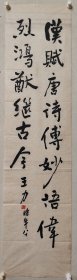 漢賦唐詩傳妙語偉
烈鴻猷繼古今 王力